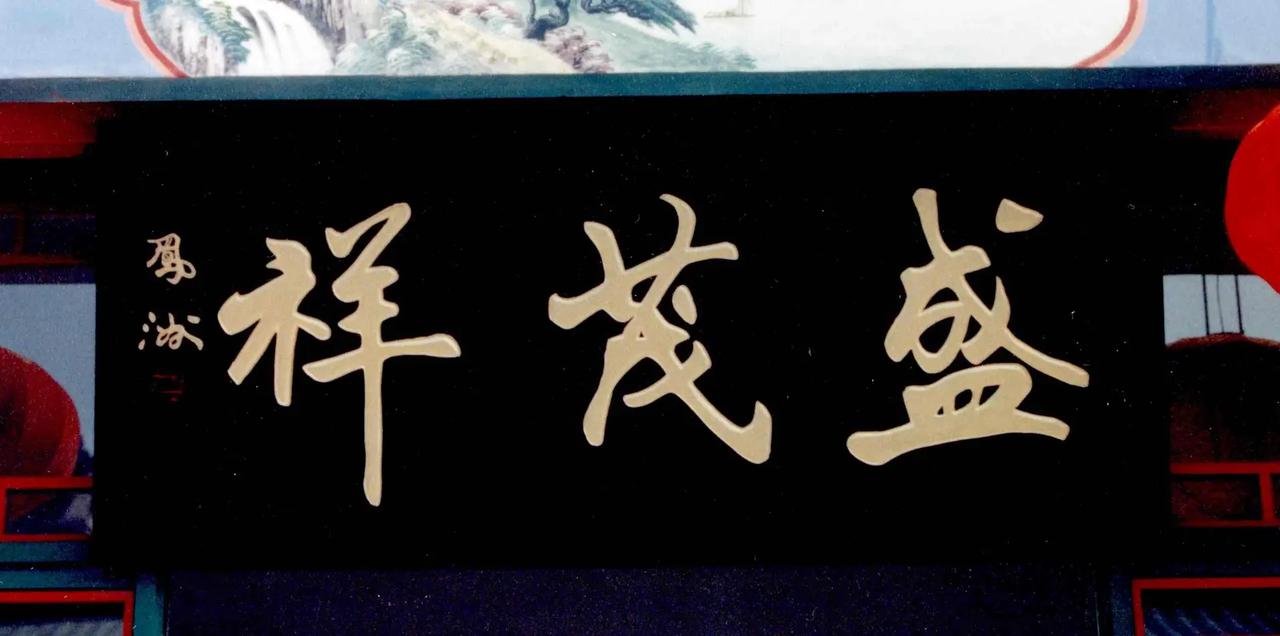 盛茂祥
鳳洲